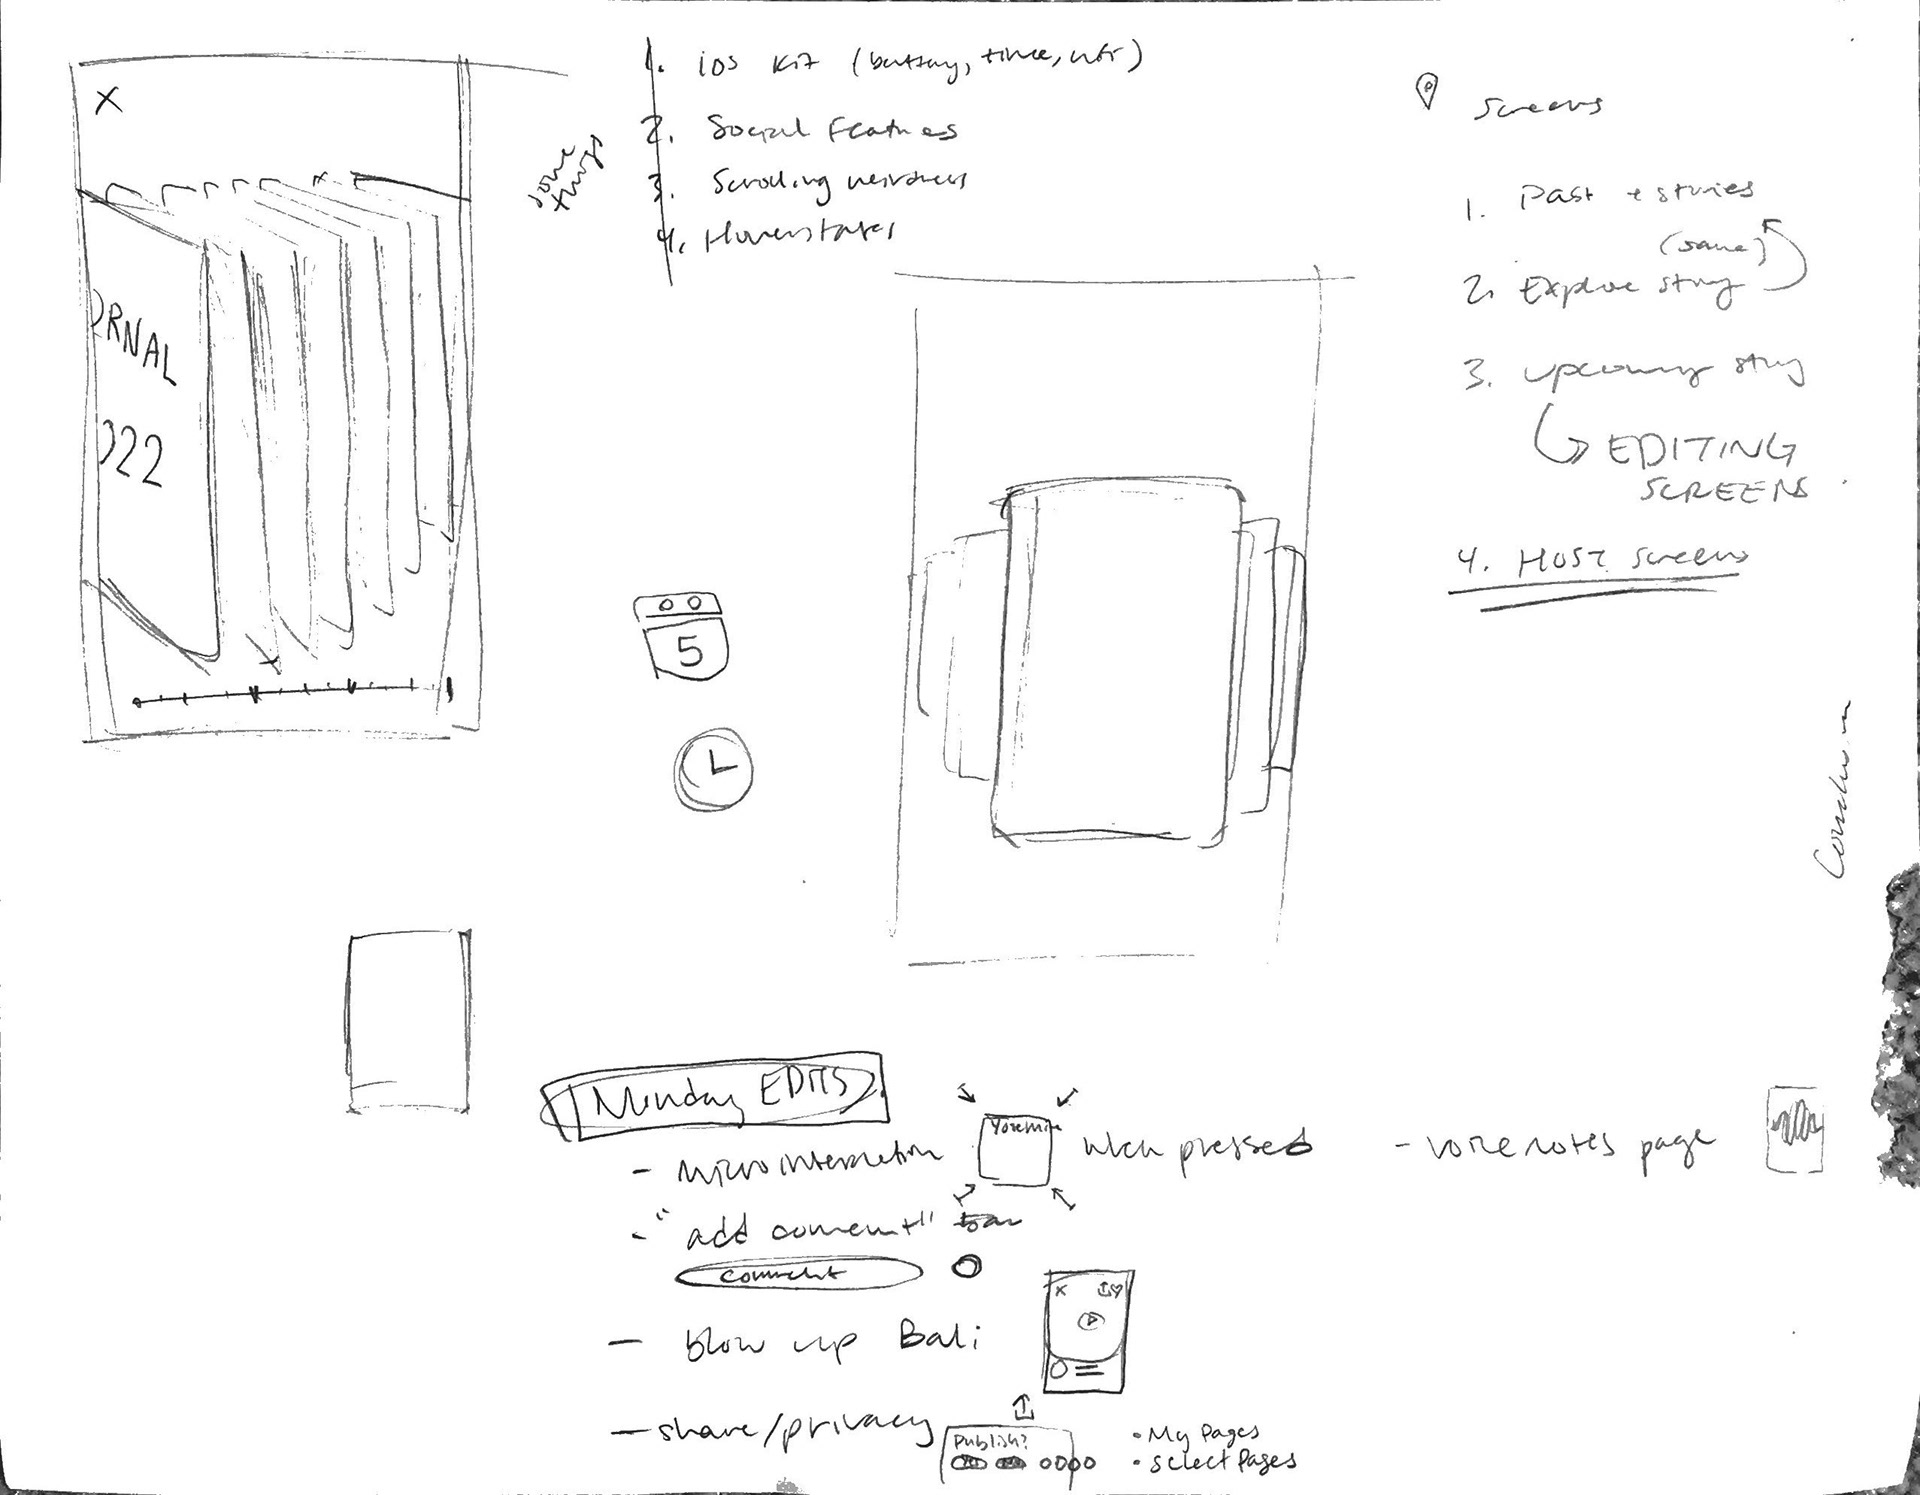 X
ORNAL
022
some things
1. iOS Kit (battery, time, wifi)
2. Social Features
3. Scrolling weirdness
4. Hoverstates
5
Screens
1. Past stories
(same)
2. Explore story
3. Upcoming story
EDITING
SCREENS
4. HOST screens
Monday EDITS
- microinteraction
Yosemite
when pressed
- voice notes page
- "add comment" bar
comment
- blow up Bali
x
- share/privacy
Publish?
• My Pages
• Select Pages